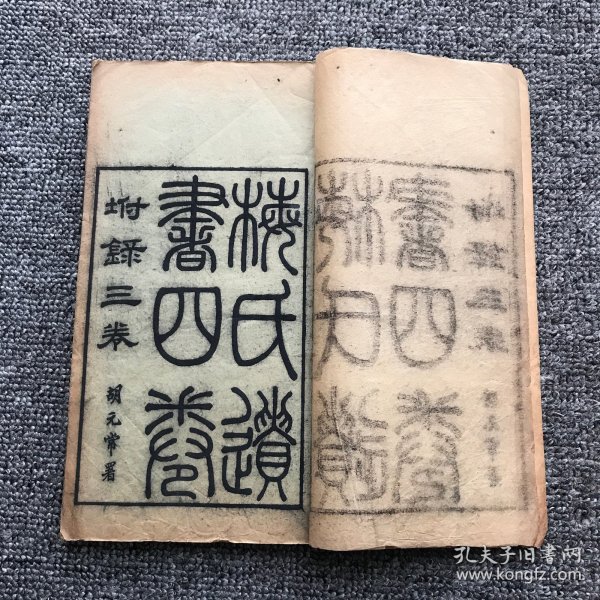 梅氏遺
書四卷
坿錄三卷
胡元常署
孔夫子旧书网
www.kongfz.com